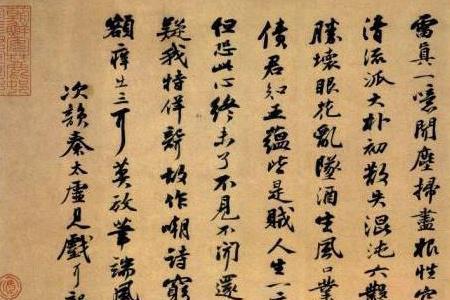 雷真一噫聞塵掃盡根性空
清流派大朴初散失混沌六鑿
勝壞眼花亂墜酒生風口業
債君知五蘊皆是賊人生一
但恐此心終未了不見不聞還
疑我特佯聾故作嘲詩窮
額癢出三耳莫放筆端風
次韻秦太虛見戲耳